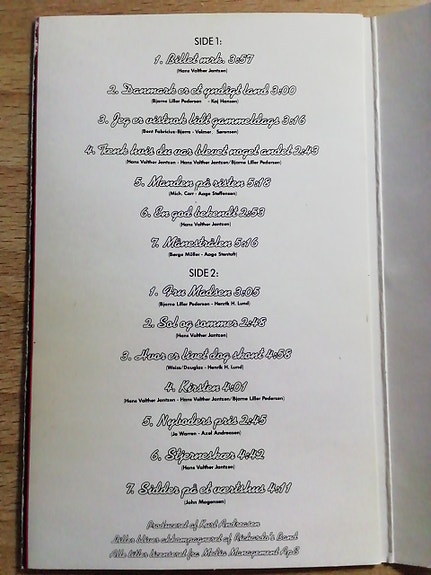 SIDE 1:
1. Billet mrk. 3:57
(Hans Valther Jantzen)
2. Danmark er et yndigt land 3:00
(Bjarne Liller Pedersen - Kaj Hansen)
3. Jeg er vistnok lidt gammeldags 3:16
(Bent Fabricius-Bjerre - Volmer. Sørensen)
4. Tænk hvis du var blevet noget andet 2:43
(Hans Valther Jantzen - Hans Valther Jantzen/Bjarne Liller Pedersen)
5. Manden på risten 5:18
(Mich. Carr - Aage Steffensen)
6. En god bekendt 2:53
(Hans Valther Jantzen)
7. Månestrålen 5:16
(Børge Müller - Aage Stentoft)
SIDE 2:
1. Fru Madsen 3:05
(Bjarne Liller Pedersen - Henrik H. Lund)
2. Sol og sommer 2:48
(Hans Valther Jantzen)
3. Hvor er livet dog skønt 4:58
(Weiss/Douglas - Henrik H. Lund)
4. Kirsten 4:01
(Hans Valther Jantzen - Hans Valther Jantzen/Bjarne Liller Pedersen)
5. Nyboders pris 2:45
(Jo Warren - Axel Andreasen)
6. Stjerneskær 4:42
(Hans Valther Jantzen)
7. Sidder på et værtshus 4:11
(John Mogensen)
Produceret af Kurt Andreasen
Liller bliver akkompagneret af Richardo's Band
Alle titler licenseret fra Malis Management ApS